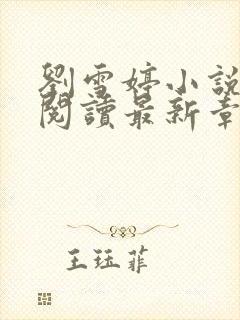 劉雪婷小說
閱讀最新章
王珏菲